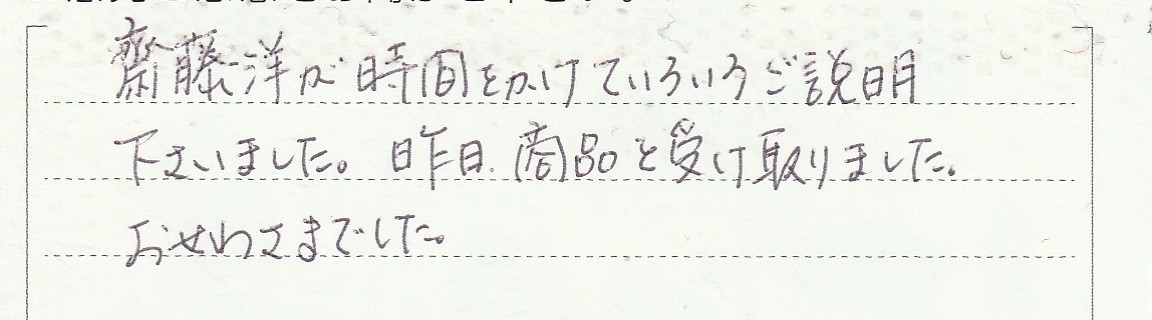 齋藤洋が時間をかけていろいろご説明
下さいました。昨日、商品を受け取りました。
おせわさまでした。